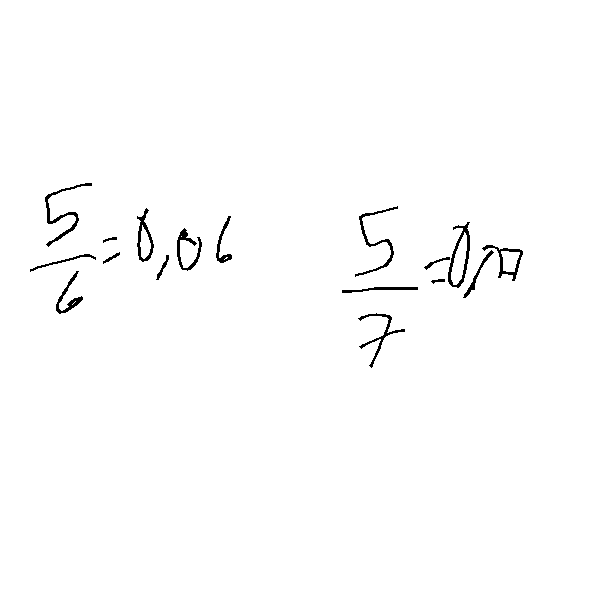 5/6 = 0,06
5/7 = 0,